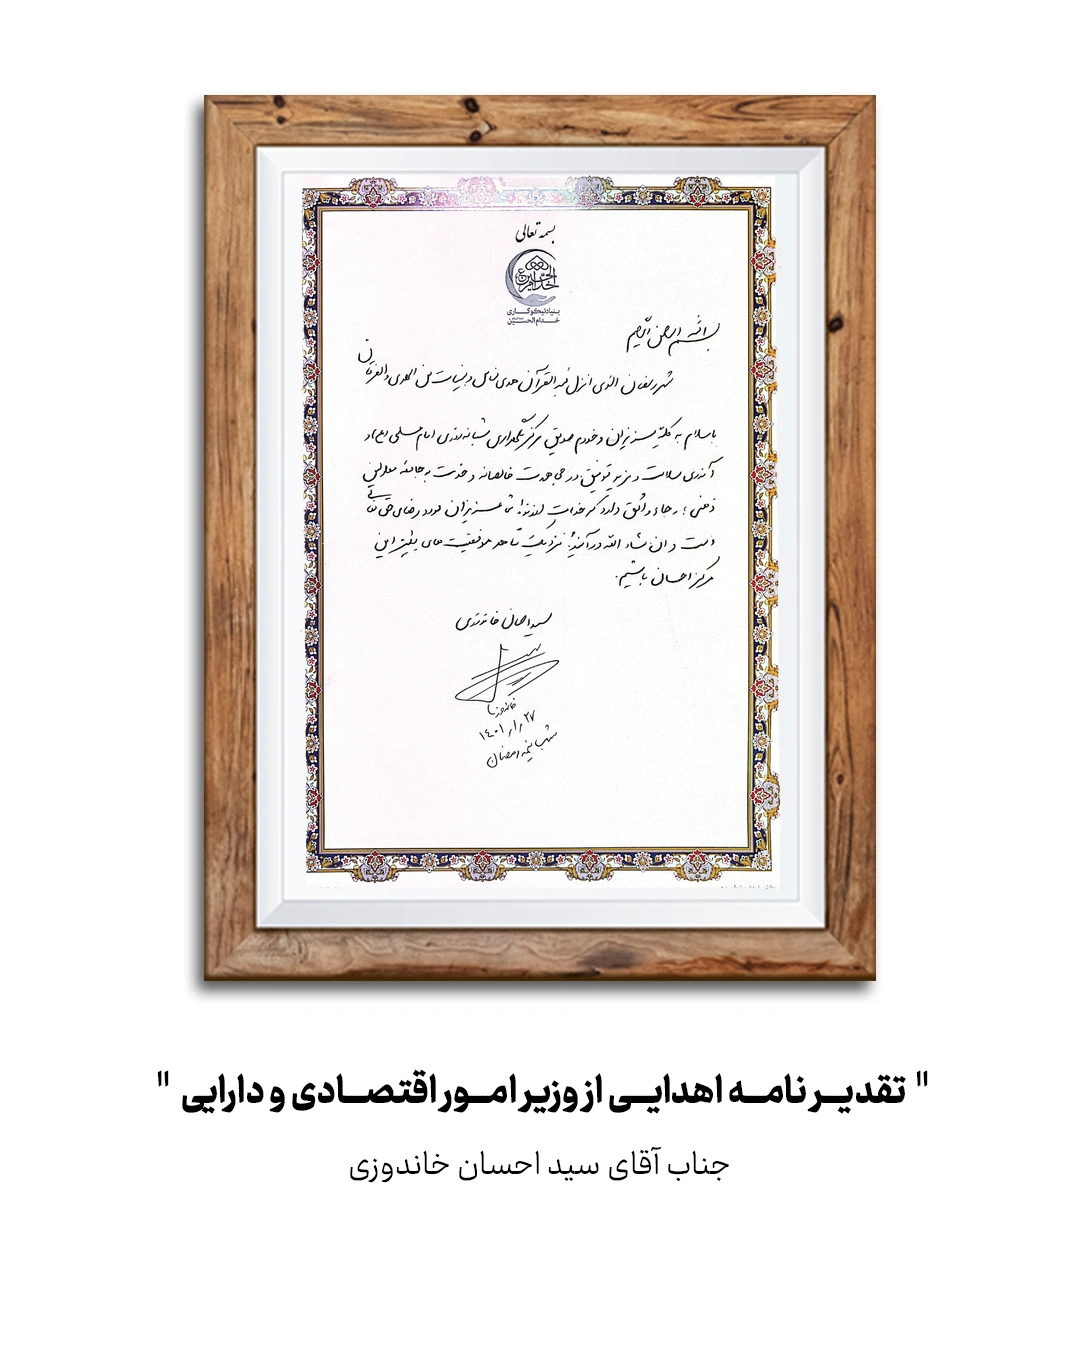 بسمه تعالی
خدام الحسین
بنیاد نیکوکاری
خدام الحسین
بسم الله الرحمن الرحیم
شهر رمضان الذی انزل فیه القرآن هدی للناس و بینات من الهدی و الفرقان
با سلام به کلیه عزیزان و خدوم صدیق مرکز نگهداری شبانه روزی امام علی (ع) و
آرزوی سلامت و مزید توفیق در مجاهدت خالصانه و خدمت به جامعه معلولین
ذهنی؛ رجاء واثق دارد که خدمات ارزنده شما عزیزان مورد رضای حق تعالی
است و ان شاء الله در آینده نزدیک شاهد موفقیت های بیشتر این
مرکز احسان باشیم.
سید احسان خاندوزی
۱۴۰۱/۱/۲۷
شب نیمه رمضان
" تقدیر نامه اهدایی از وزیر امور اقتصادی و دارایی "
جناب آقای سید احسان خاندوزی